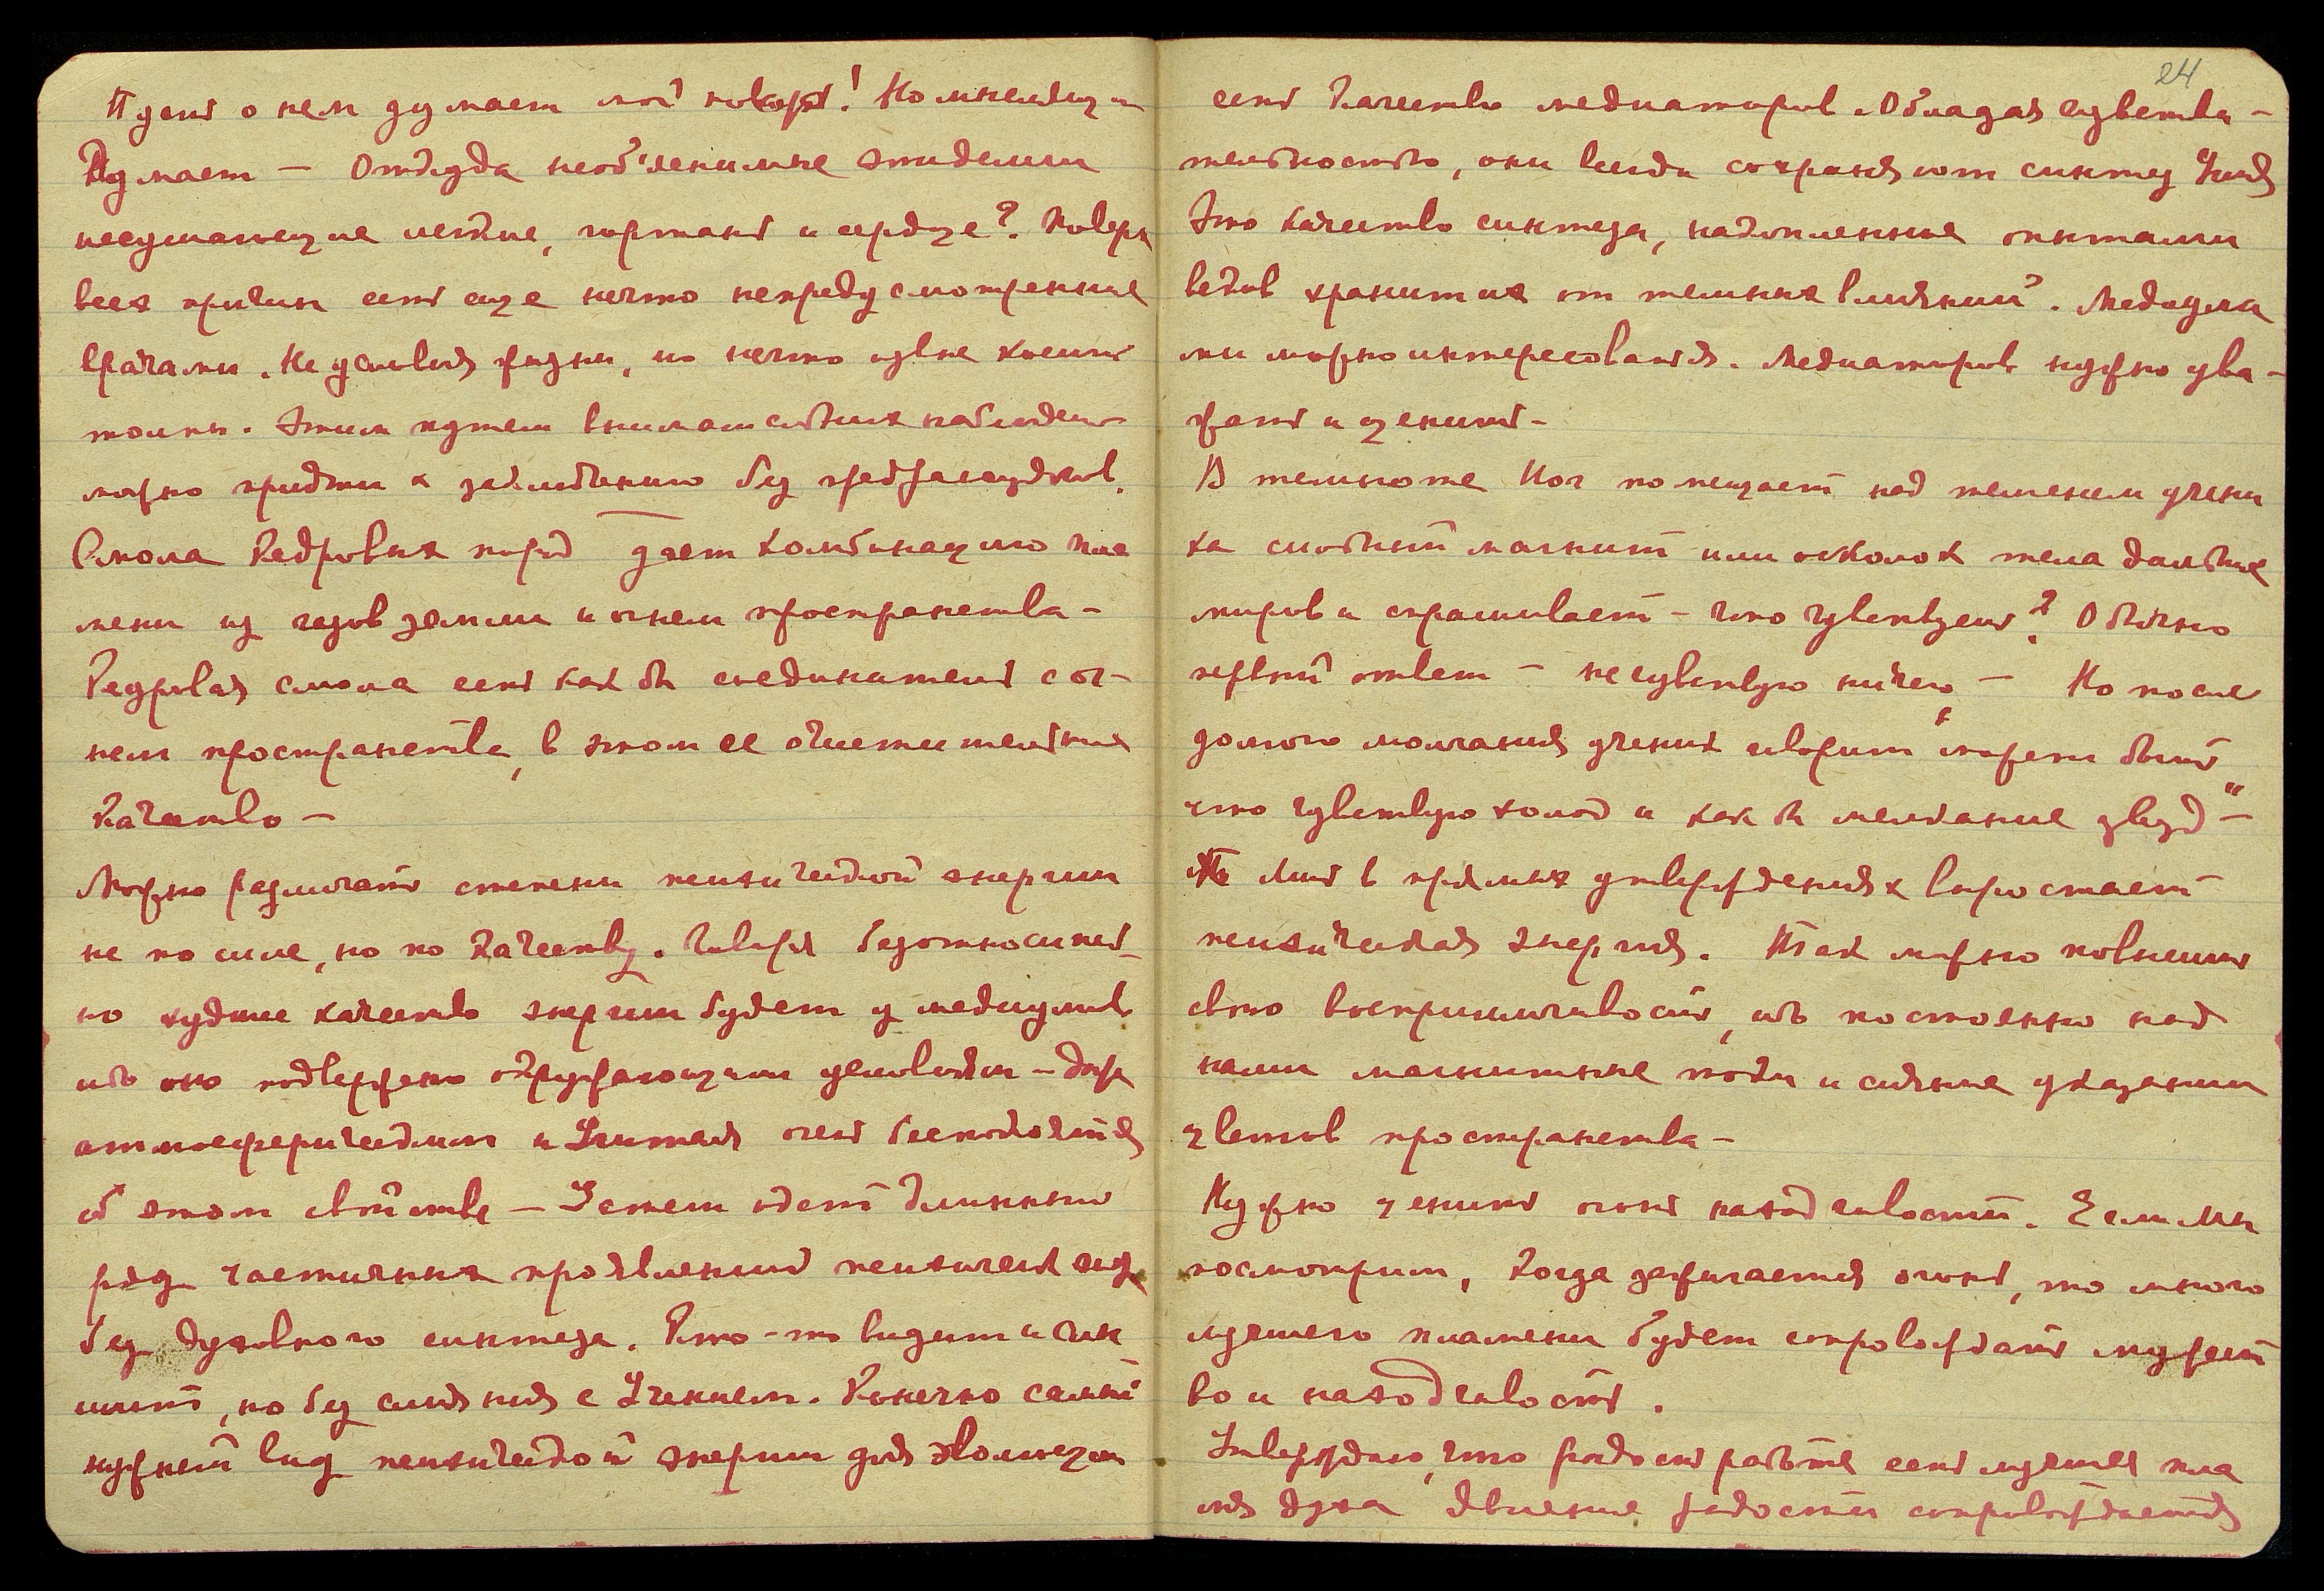 Пусть о нем думает мой повар! Но мыслящий
Думает — Откуда необ'яснимые эпидемии
иссушающие легкие, гортань и сердце? Поверх
всех причин есть еще нечто непредусмотренное
врачами. Не условия жизни, но нечто извне косит
толпы. Этим путем внимательных наблюдений
можно придти к заключению без предрассудков.
Смола Кедровых пород дает комбинацию пла
мени из недр земли и огнем пространства —
Кедровая смола есть как бы соединитель с ог-
нем пространства, в этом ее очистительное
Качество —
Можно различать степени психической энергии
не по силе, но по Качеству. Говоря безотноситель-
но худшее качество энергии будет у медиумов
ибо оно подвержено окружающим условиям — даже
атмосферическим и Учитель очень беспокоится
об этом свойстве — Затем идет длинный
ряд частичных проявлений психической
без духовного синтеза. Кто-то видит и слы
шит, но без слияния с Учением. Конечно самый
нужный вид психической энергии для эволюции
24
есть Качество медиаторов. Обладая чувстви-
тельностью, они всегда сохраняют синтез Учения
Это качество синтеза, накопленное опытами
веков хранит их от темных влияний. Медиума
ми можно интересоваться. Медиаторов нужно ува-
жать и ценить —
В темноте Йог помещает над теменем учени
ка сильный магнит или осколок тела дальних
миров и спрашивает — что чувствуешь? Обычно
первый ответ — не чувствую ничего — Но после
долгого молчания ученик говорит „может быть
что чувствую холод и как бы мелькание звезд" —
Лишь в прямых утверждениях вырастает
психическая энергия. Так можно повысить
свою восприимчивость, ибо постоянно над
нами магнитные токи и сияние указании
цветов пространства —
Нужно ценить огонь находчивости. Если мы
посмотрим, когда зажигается огонь, то много
лучшего пламени будет сопровождать мужест
во и находчивость.
Утверждаю, что радость работы есть лучшее пла
мя духа Явление радости сопровождается